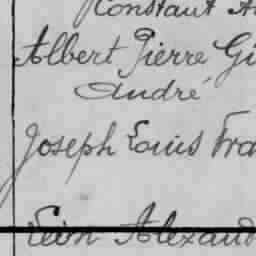 Constant A
Albert Pierre Gi
André
Joseph Louis Fra
Léon Alexand